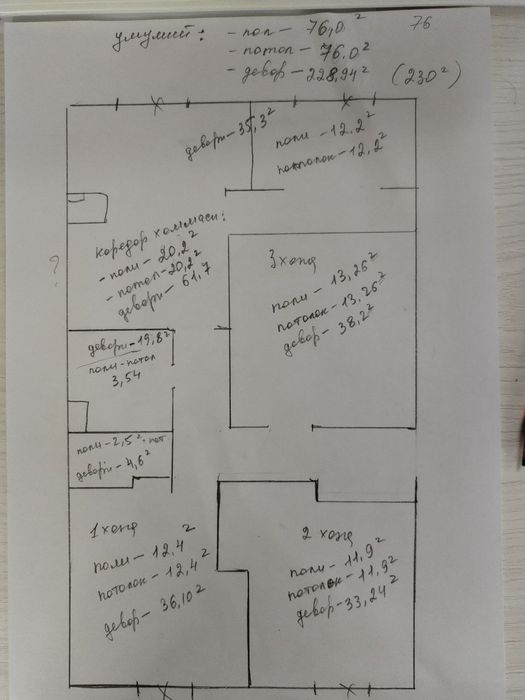 умумий: - пол - 76,0² 76
- потол - 76.0²
- девор - 228,94² (230²)
девори - 35,3²
поли - 12.2²
потолок - 12,2²
коредор холммаси:
- поли - 20,2²
- потол - 20,2²
девори - 61,7
?
3 хона
поли - 13,26²
потолок - 13.26²
девор - 38,2²
девори - 19,8²
поли - потол
3,54
поли - 2,5² пот
девори - 4,6²
1 хона
поли - 12,4²
потолок - 12,4²
девор - 36,10²
2 хона
поли - 11,9²
потолок - 11,9²
девор - 33,24²